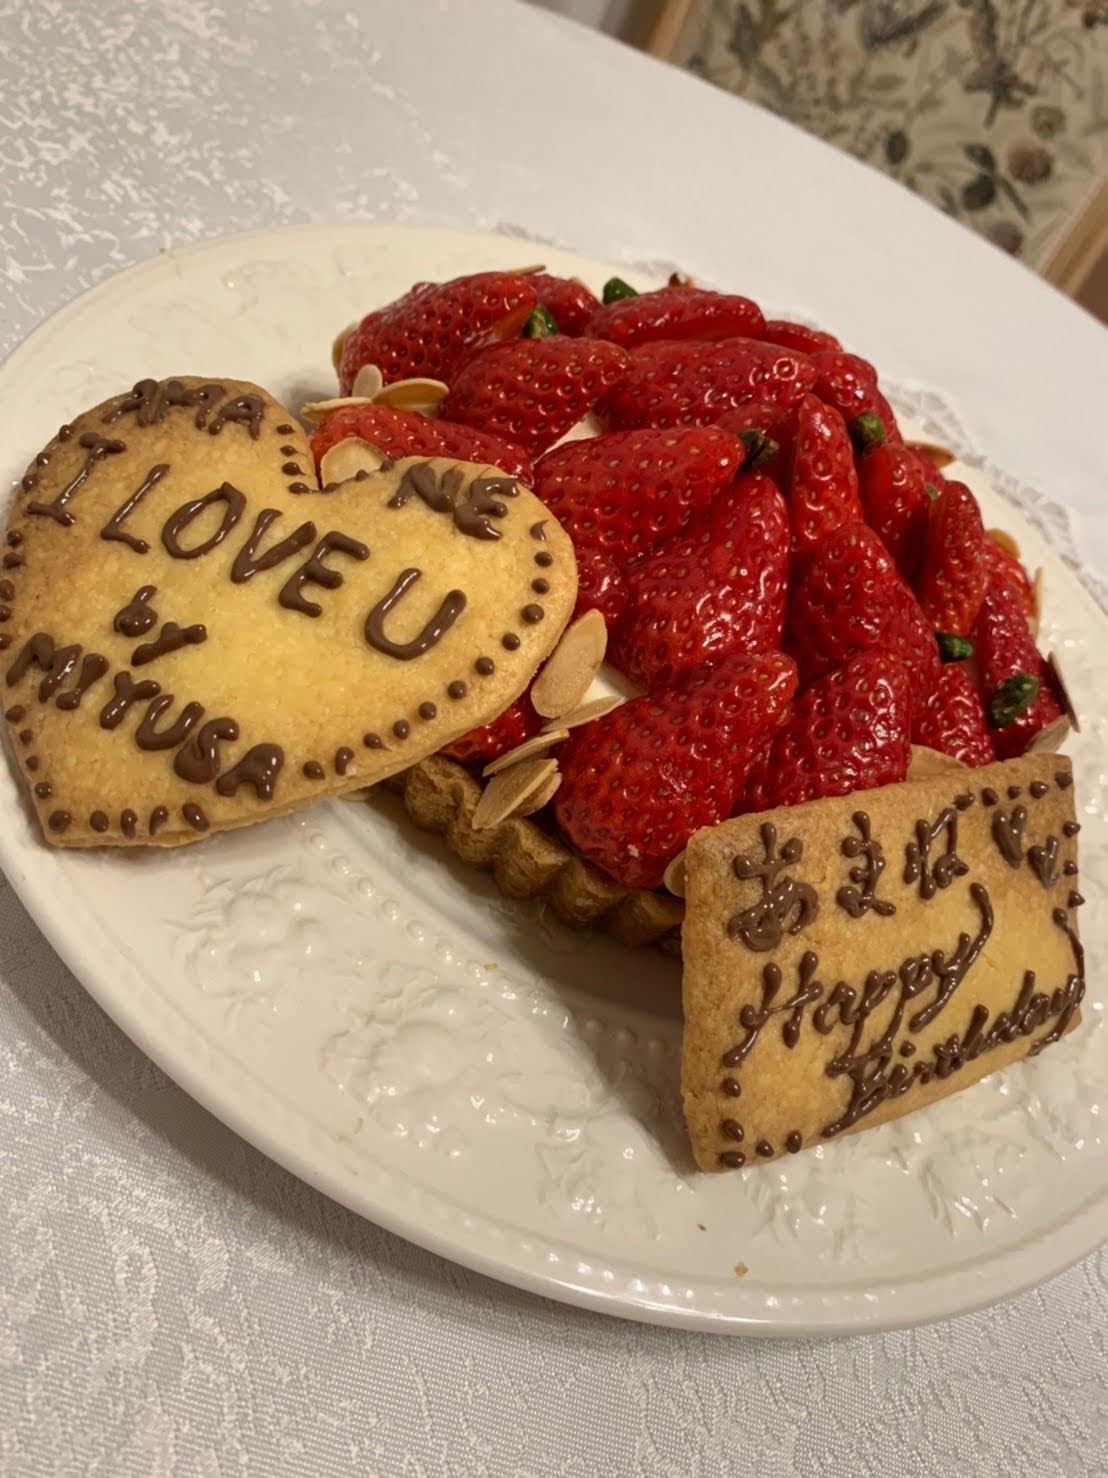 AMA NE
I LOVE U
by
MIYUSA
あまね ♥♥
Happy
Birthday